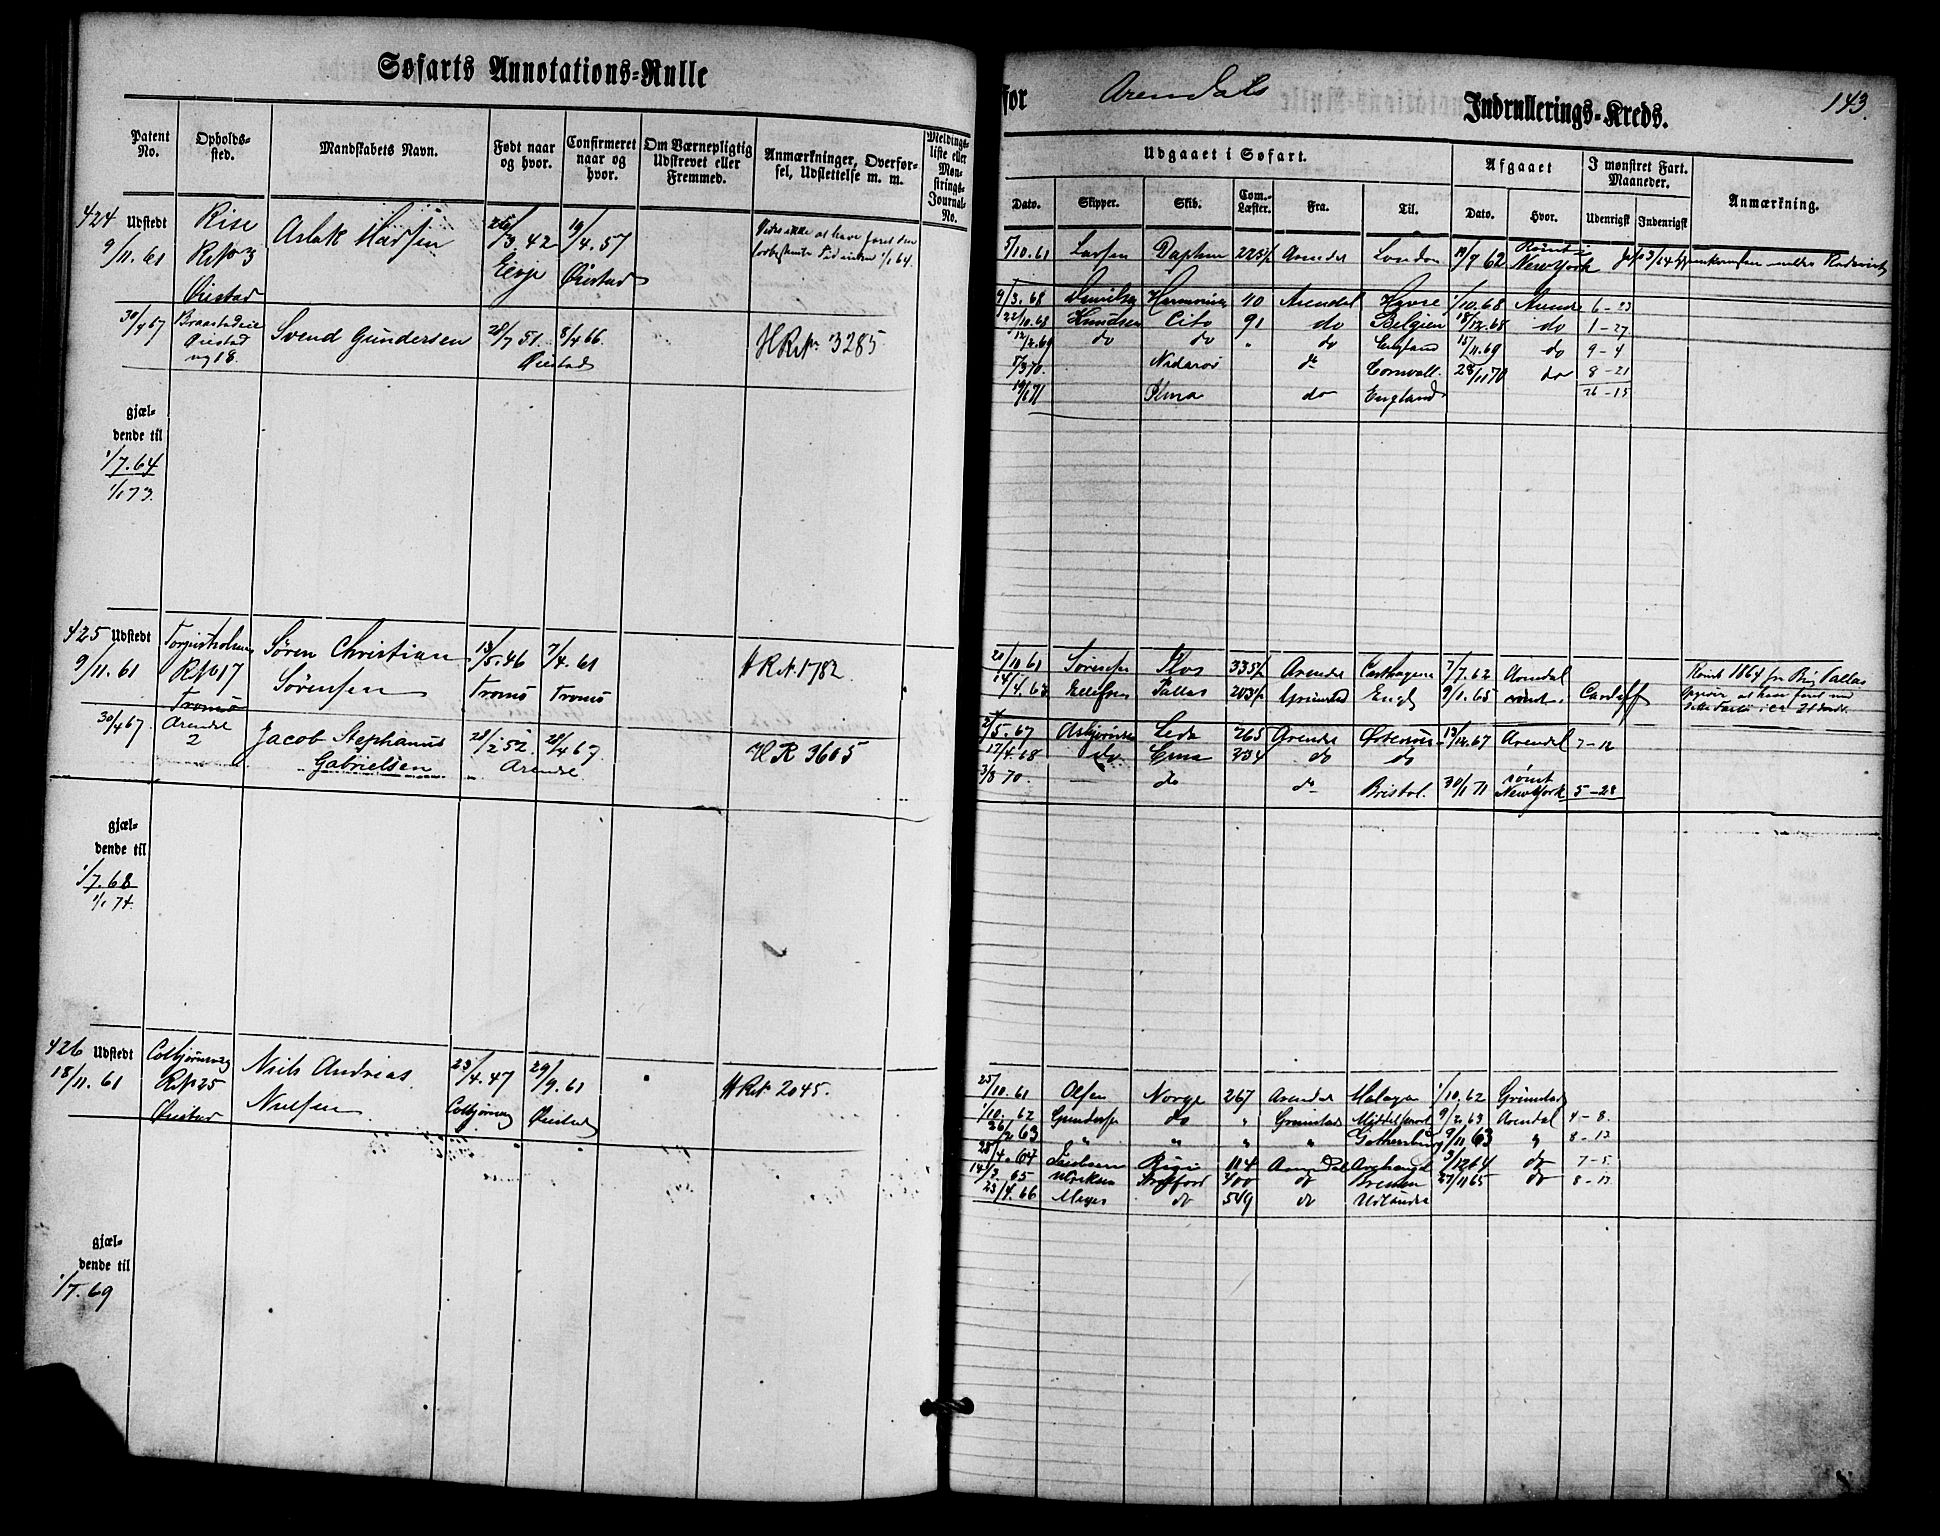 Søfarts Annotations=Rulle
Patent No.
Opholds-sted.
Mandskabets Navn.
Født naar og hvor.
Confirmeret naar og hvor.
Om Værnepligtig Udskrevet eller Fremmed.
Anmærkninger, Overførsel, Udslettelse m. m.
Meldingsliste eller Mønstrings-Journal-No.
424 Udstedt
9/11. 61
Rise
RNo 3
Øiestad
Aslak Madsen
26/3. 42
Eivje
19/4. 57
Øiestad
30/4 67
Øiestad
No 18.
Svend Gundersen
28/7 51.
8/4 66.
Øiestad
HRNo 3285
gjæl-
dende til
1/7. 64
1/1 73.
425 Udstedt
9/11. 61
RNo 17
Tromø
Søren Christian
Sørensen
13/5. 46
Tromø
7/4. 61
Tromø
HRNo. 1782.
30/4 67.
Arendal
2
Jacob Stephanus
Gabrielsen
28/2 52.
28/4 67
Arendal
HR 3605
gjæl-
dende til
1/7. 68
1/1 74.
426 Udstedt
18/11. 61
Colbjørnsvig
RNo 25
Øiestad
Niels Andreas
Nielsen
23/4. 47
Colbjørnsvig
29/9. 61
Øiestad
HRNo 2045.
gjæl-
dende til
1/7. 69
for Arendals Indrullerings=Kreds. 143.
Udgaaet i Søfart.
Afgaaet
I mønstret Fart. Maaneder.
Anmærkning.
Dato. Skipper. Skib. Com. Læster. Fra. Til. Dato. Hvor. Udenrigst Indenrigst
5/10. 61 Larsen Daphne Arendal London 19/7 62 Rømt i New York
9/3. 68 Danielsen Harmonien 40 Arendal Havre 1/10. 68 Arendal 6 - 23
22/10. 68 Knudsen Cito 91 do Belgien 18/12. 68 do 1 - 27
12/2. 69 do do " do England 15/11. 69 do 9 - 4
Nidaros do Cornwall. 28/11 70 do 8 - 21
Alma do England 26 - 15
21/10 61 Sørensen Arendal Carthagena 7/7. 62 Arendal
14/4. 63 Ellefsen Pallas Grimstad Engl 9/1. 65 rømt. Cardiff
Rømt 1864 fra Brig Pallas
2/5. 67 Asbjørnsen Leda 265 Arendal Østersøen 13/12. 67 Arendal 7 - 12
17/4. 68 do do do
3/8 70. do do Bristol. 30/1 71 rømt New York 5 - 28
25/10. 61 Olsen Norge 267 Arendal Malaga 1/10. 62 Grimstad
1/10. 62 Gundersen do " Grimstad 9/2. 63 Arendal 4 - 8.
26/2 63 " " " " Gothenburg 9/11 63 " 8 - 13
28/4. 64 Jacobsen 114 Arendal Archangel 3/12 64 do 7 - 5
14/3. 65 Ulriksen 400 do Bremen 27/11 65 do 8 - 13
23/4. 66 Meyer do 549 do Udlandet